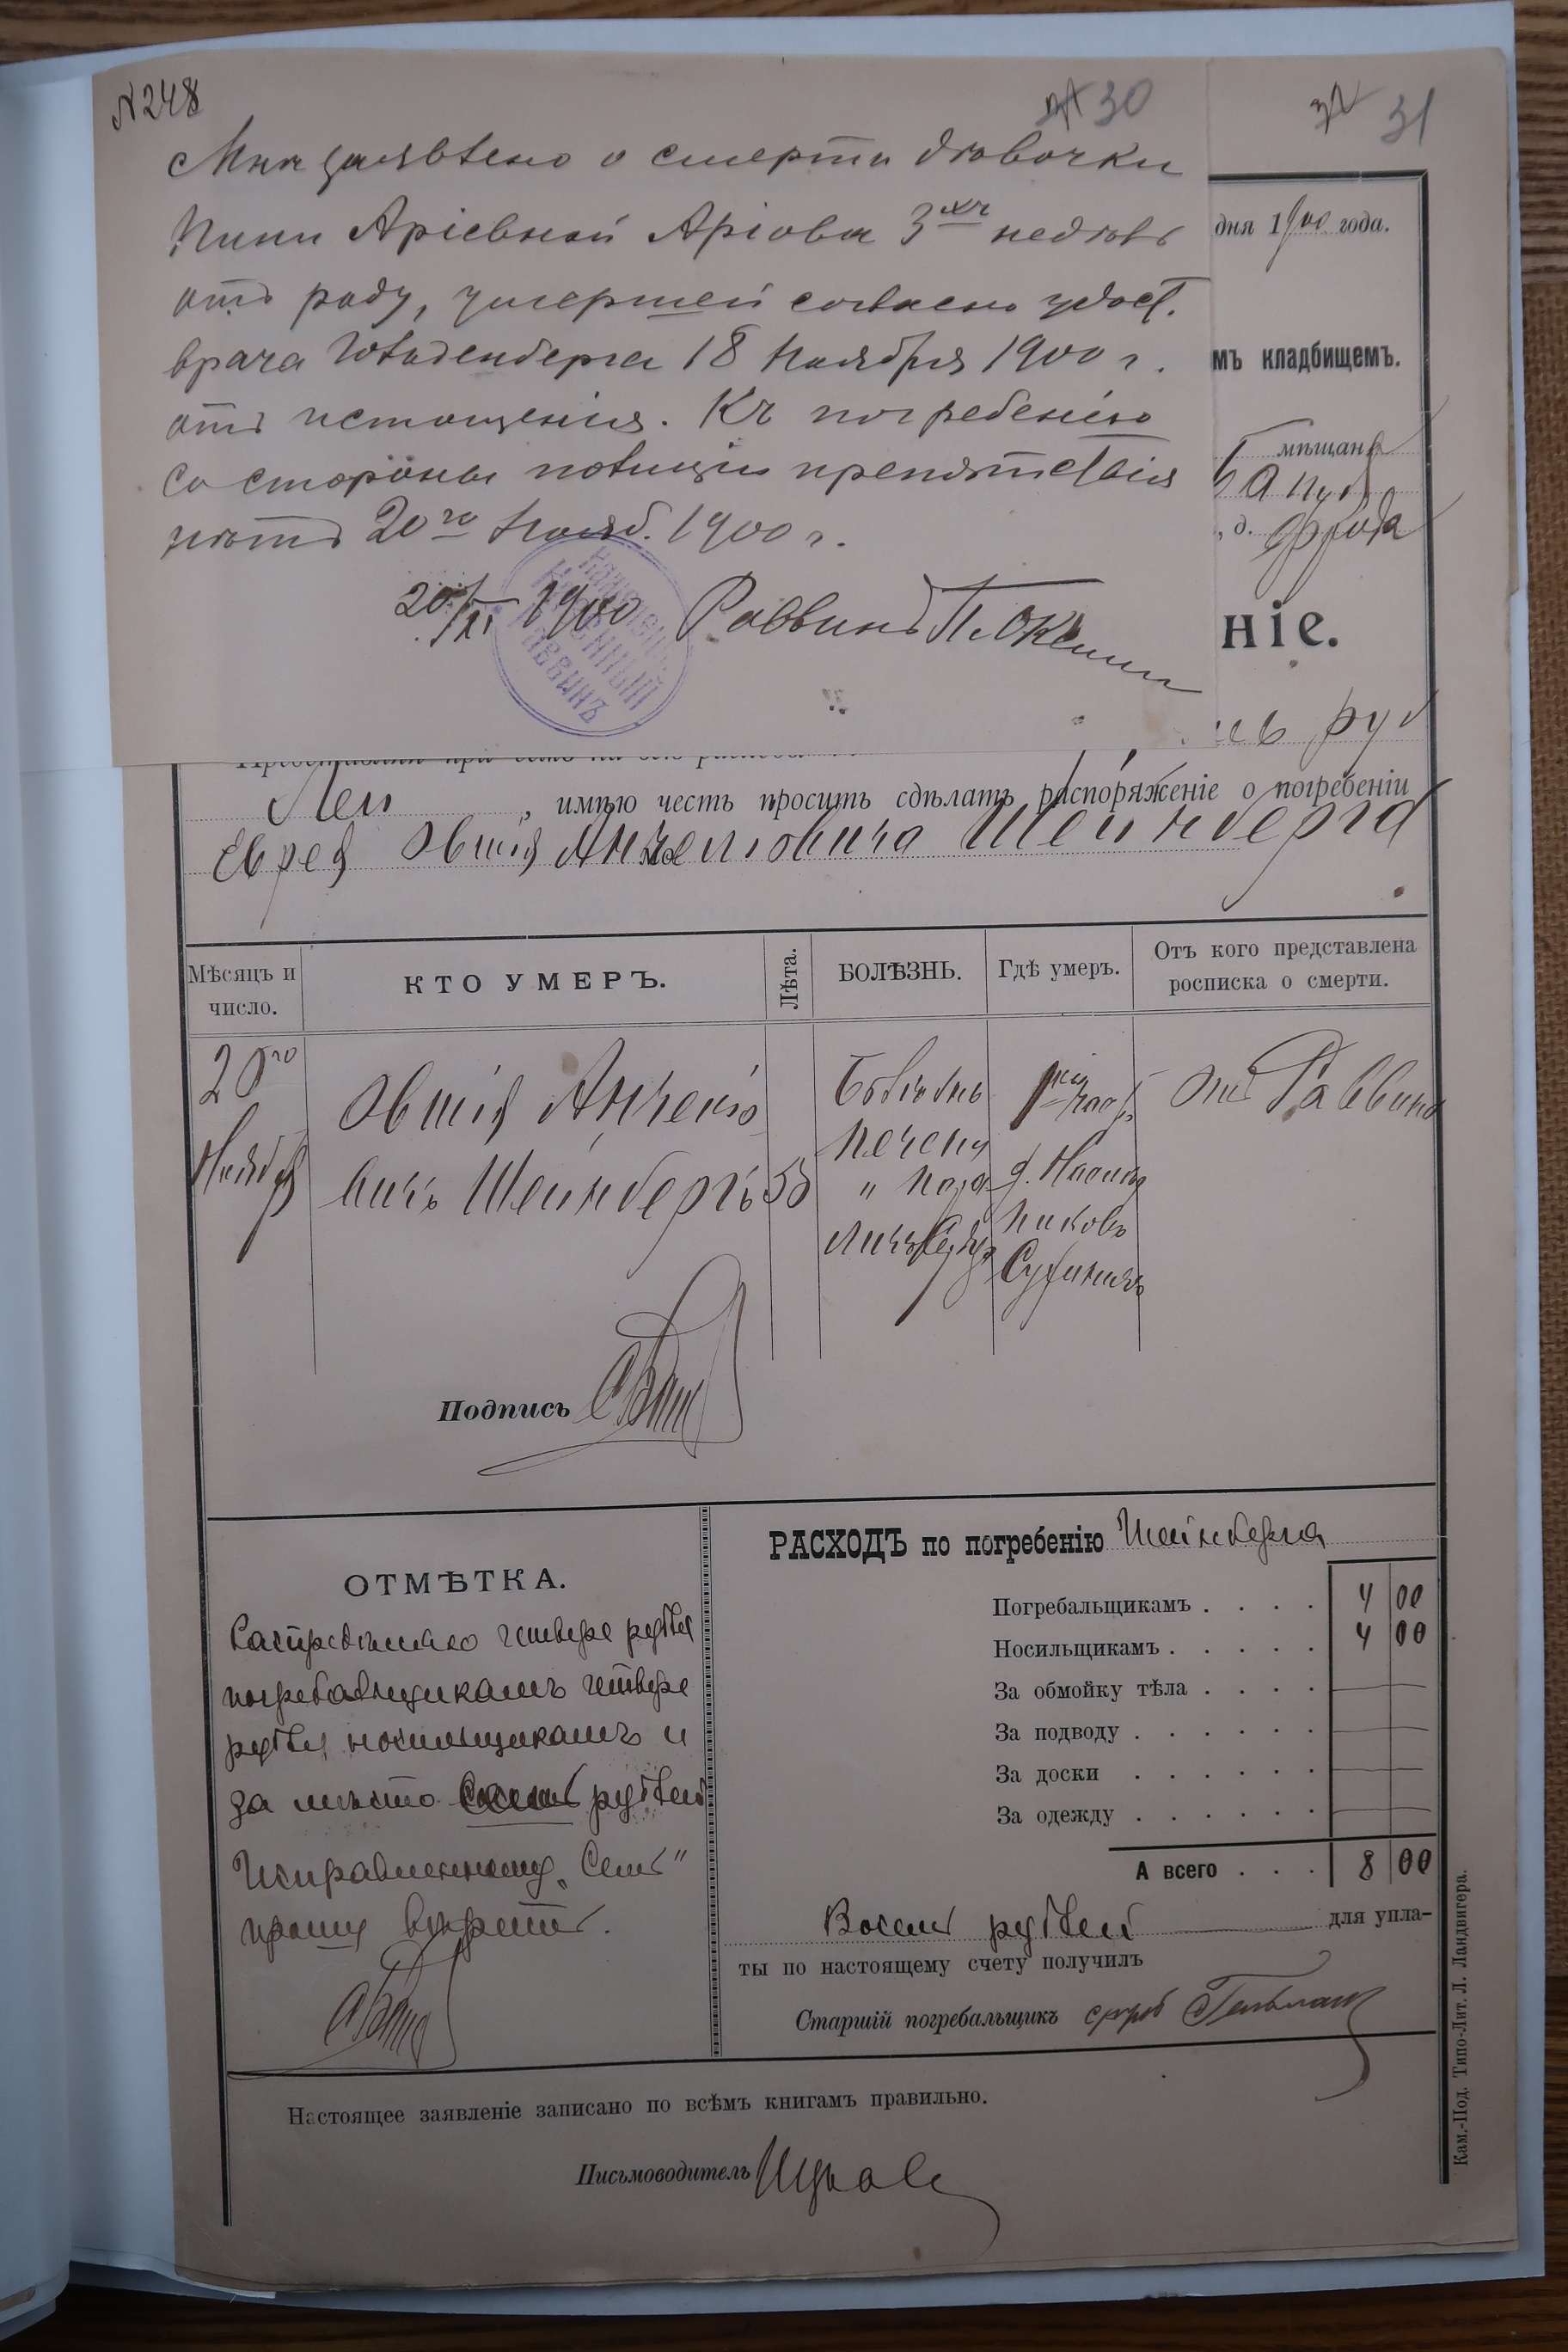 N 248
30
Мнѣ заявлено о смерти дѣвочки
Аріевной 3хъ недѣль
отъ роду, умершей согласно удост.
врача 18 Ноября 1900 г.
отъ истощенія. Къ погребенію
со стороны полиціи препятствія
нѣтъ 20го Нояб. 1900 г.
20/XI 1900 Раввинъ
КАЗЕННЫЙ
РАВВИНЪ
32 31
дня 1900 года.
мъ кладбищемъ.
мѣщанъ
, д.
ніе.
руб
лей , имѣю честь просить сдѣлать распоряженіе о погребеніи
Еврея Овшія Анчеліовича Шейнберга
Мѣсяцъ и число.
КТО УМЕРЪ.
Лѣта.
БОЛѢЗНЬ.
Гдѣ умеръ.
Отъ кого представлена росписка о смерти.
20го
Ноября
Овшія Анчеліо-
вичъ Шейнбергъ
55
Болѣзнь
печени
отъ Раввина
Подпись
ОТМѢТКА.
Распредѣлено четыре рубля
погребальщикамъ четыре
рубля носильщикамъ и
за мѣсто семь рублей
Исправленному „Семь"
прошу вѣрить.
РАСХОДЪ по погребенію Шейнберга
Погребальщикамъ . . . . 4 00
Носильщикамъ . . . . . 4 00
За обмойку тѣла . . . .
За подводу . . . . . .
За доски . . . . . .
За одежду . . . . . .
А всего . . . 8 00
Восемь рублей для упла-
ты по настоящему счету получилъ
Старшій погребальщикъ
Настоящее заявленіе записано по всѣмъ книгамъ правильно.
Письмоводитель
Кам.-Под. Типо-Лит. Л. Ландвигера.